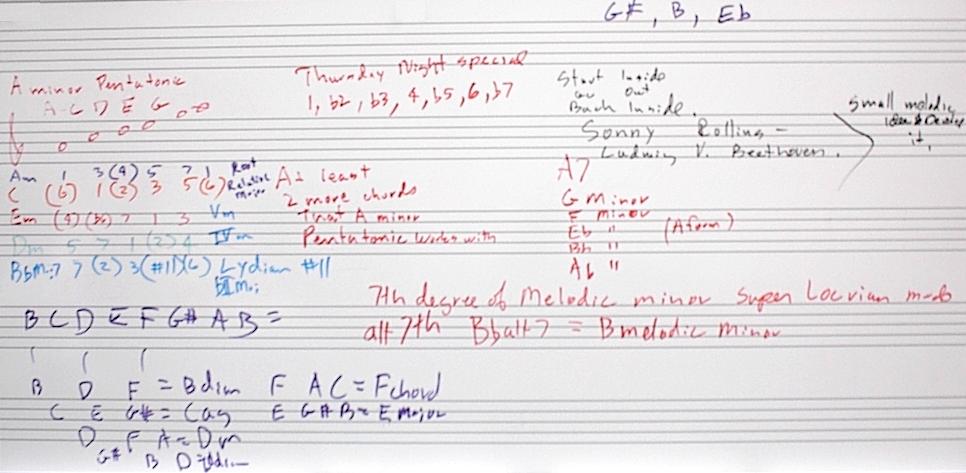 G#, B, Eb
A minor Pentatonic
A-C D E G
Thursday Night special
1, b2, b3, 4, b5, 6, b7
Start Inside
go out
Back Inside.
Sonny Rollins -
Ludwig V. Beethoven.
small melodic
idea & Develop
it,
Am 1 3 (4) 5 7 1 Root
C (6) 1 (2) 3 5 (6) Relative Major
Em (4) (b6) 7 1 3 Vm
Dm 5 7 1 (2) 4 IVm
BbMaj7 7 (2) 3 (#11) (6) Lydian #11
bII Maj
At least
2 more chords
That A minor
Pentatonic works with
A7
G minor
F minor
Eb "
Bb "
Ab "
(A form)
7th degree of Melodic minor Super Locrian mode
alt 7th Bbalt7 = B melodic minor
B C D E F G# A B =
B D F = B dim F A C = F chord
C E G# = Caug E G# B = E Major
D F A = Dm
G# B D =